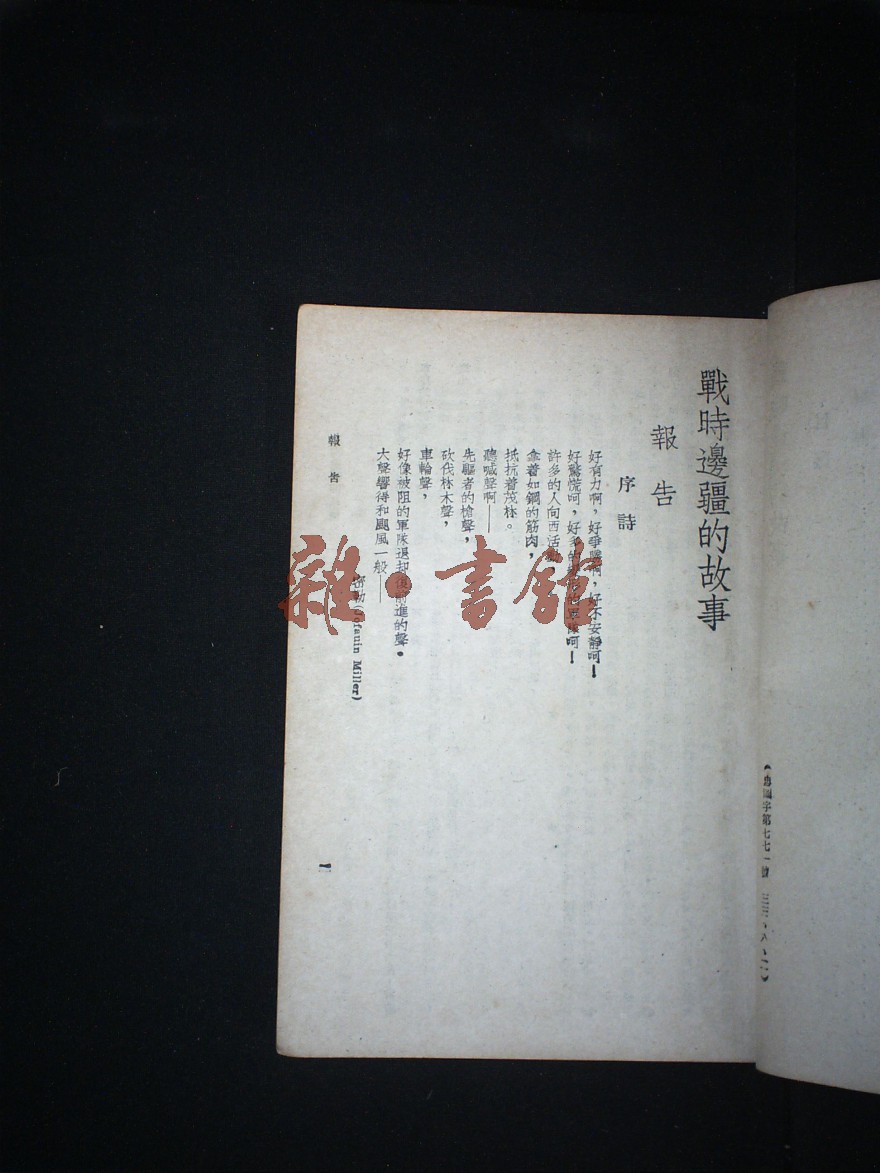 戰時邊疆的故事
報告
序詩
好有力啊，好爭勝啊，好不安靜呵！
好驚慌呵，好多的
許多的人向西活動
拿着如鋼的筋肉，
抵抗着茂林。
聽喊聲啊——
先驅者的槍聲，
砍伐林木聲，
車輪聲，
好像被阻的軍隊退却後前進的聲。
大聲響得和颶風一般——
密勒(Jofanin Miller)
報告
一
字第七七一號
雜·書館